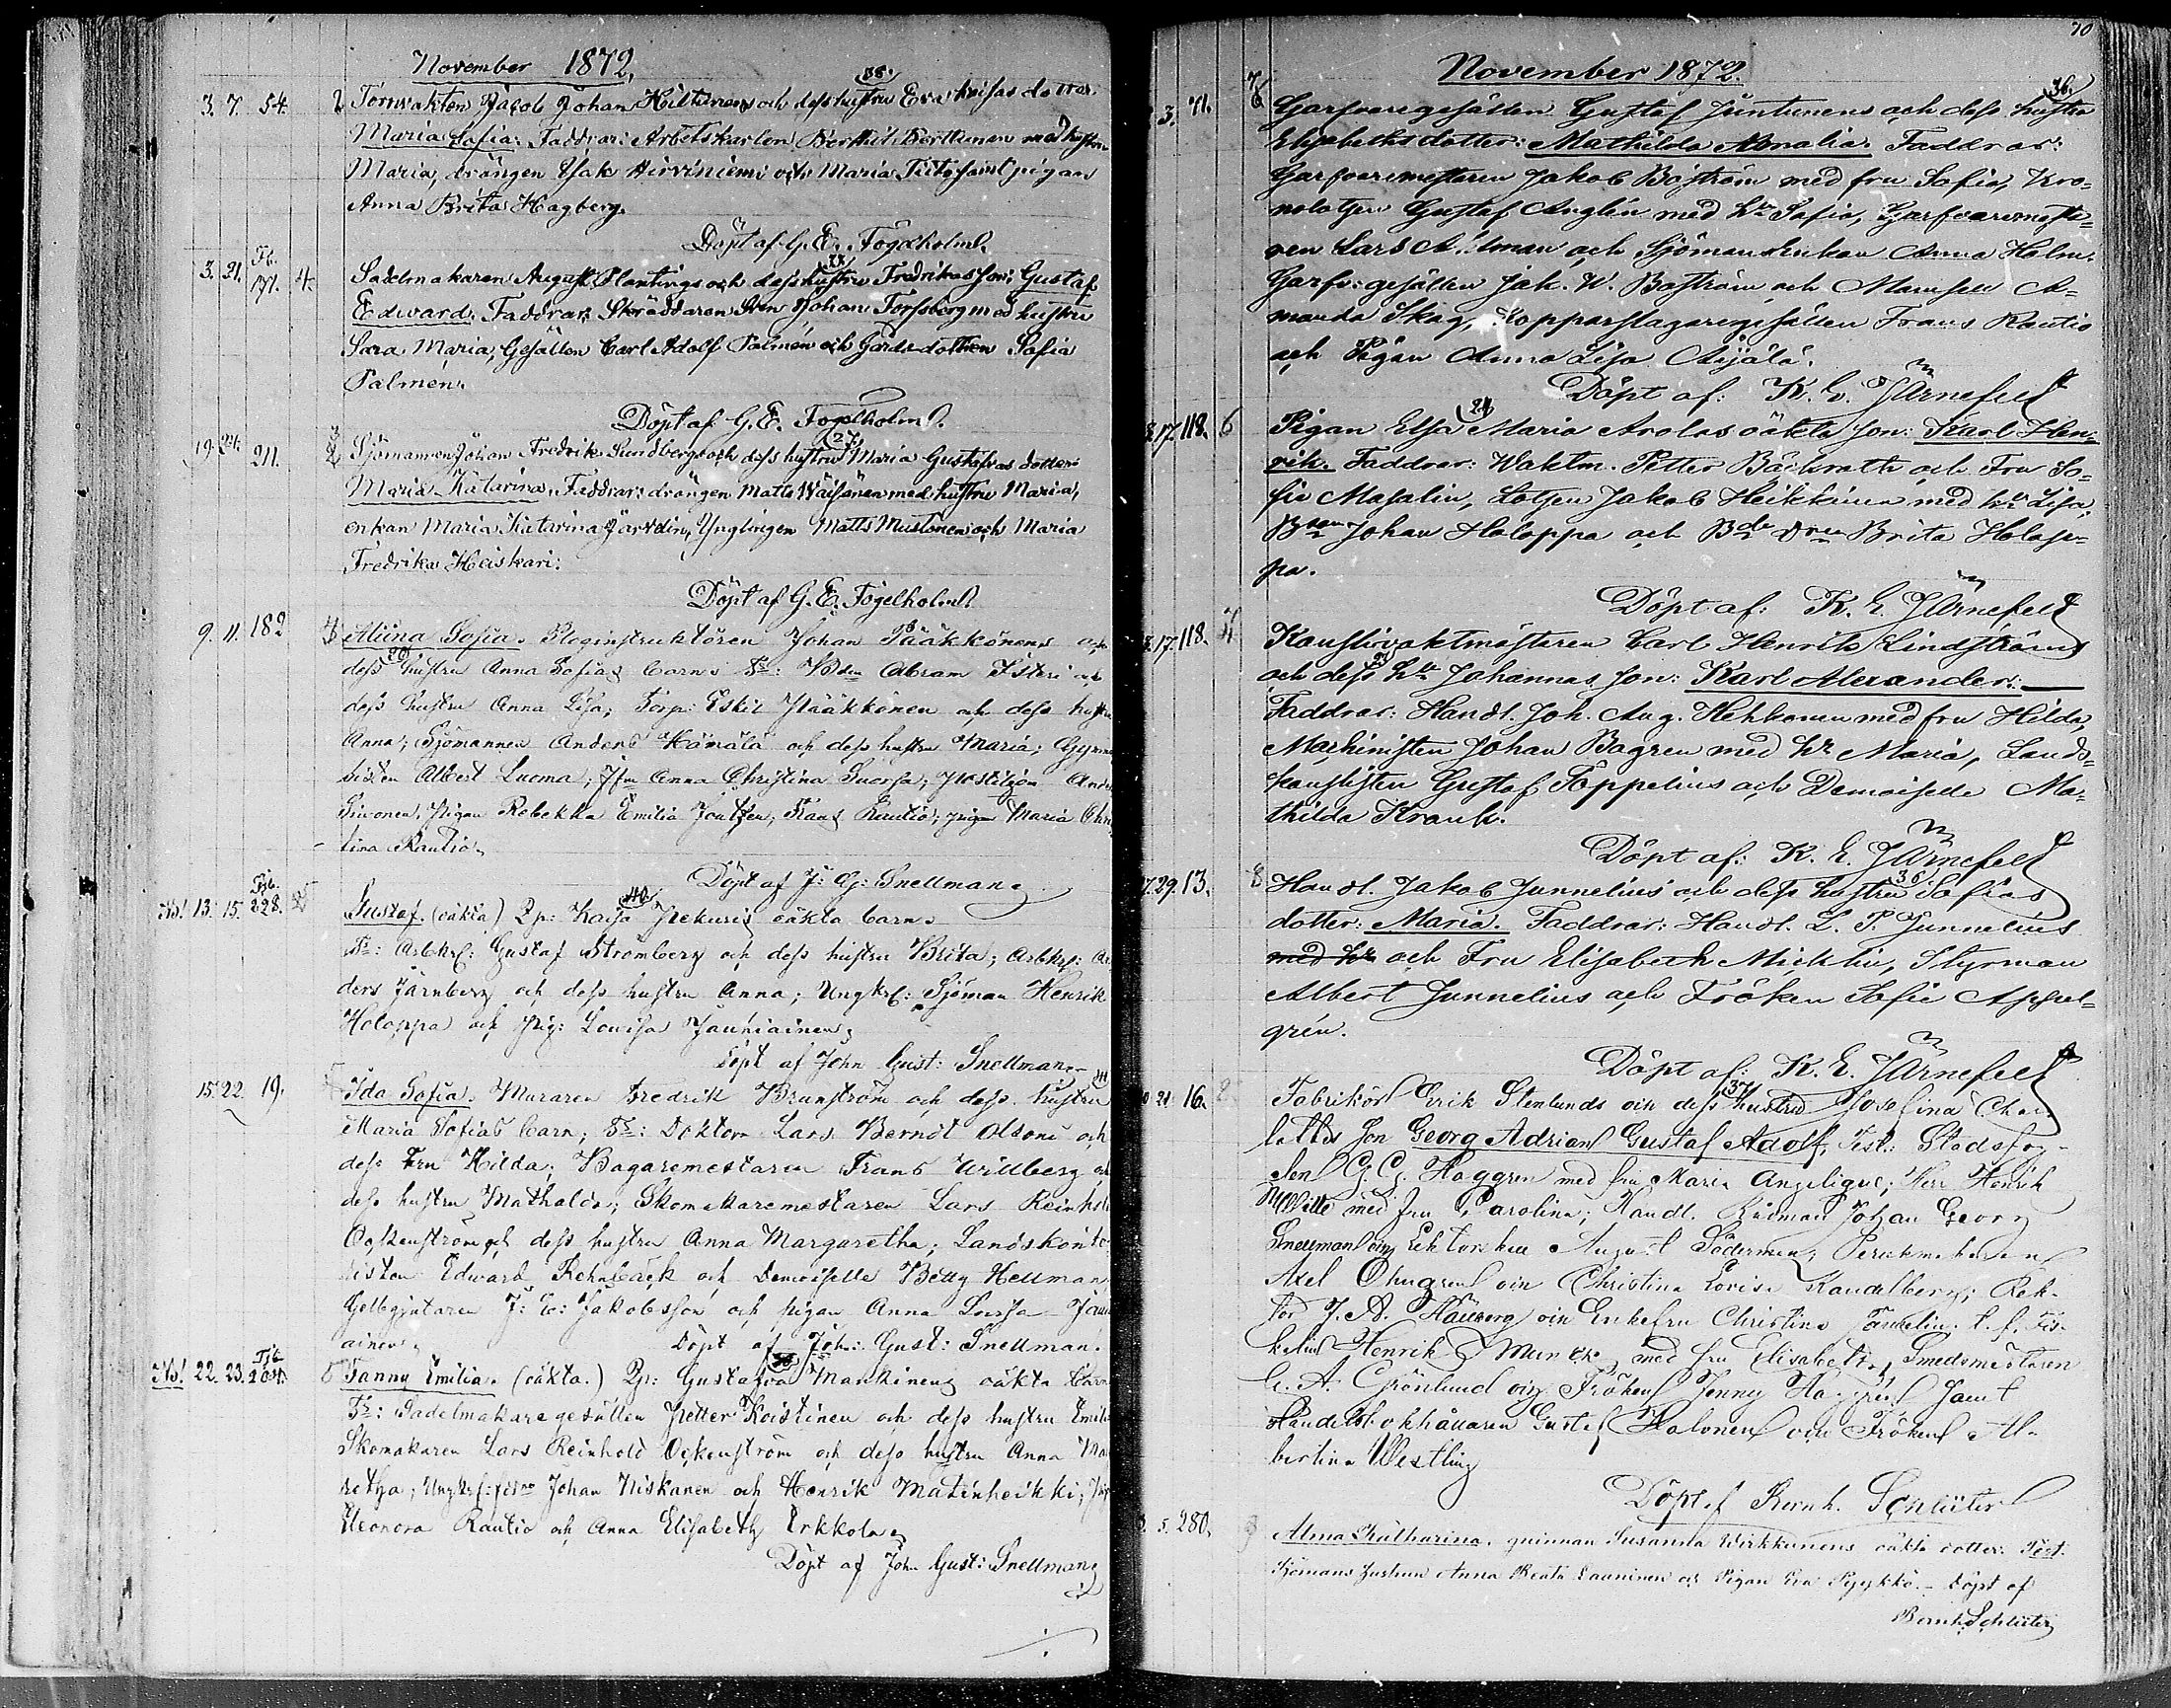 November 1872.
3. 7. 54. Tornvakten Jacob Johan Hiltunens och dess hustru Eva Kaisas dotter
Maria Sofia. Faddrar: Arbetskarlen Berthil Berttunen med hustru
Maria, drängen Isak Hirviniemi och Maria samt pigan
Anna Brita Hagberg.
Döpt af G. E. Fogelholm.
3. 21. 171. 4. Sadelmakaren August Plantings och dess hustru Fredrikas son: Gustaf
Edward. Faddrar: Skräddaren Sven Johan Forssberg med hustru
Sara Maria, Gesällen Carl Adolf Palmén och Gårds dottren Sofia
Palmén.
Döpt af G. E. Fogelholm.
19. 24. 211. Sjömannen Johan Fredrik Sundbergs och dess hustru (27) Maria Gustafvas dotter
Maria Katarina. Faddrar: drängen Matts Wäisänen med hustru Maria,
enkan Maria Katarina Ynglingen Matts Mustonen och Maria
Fredrika Heiskari.
Döpt af G. E. Fogelholm
9. 11. 182 Aliina Sofia. Ploginstruktören Johan Pääkkönens och
dess hustru Anna Sofias barn: Fr: Bden Abram Isteri och
dess hustru Anna Lisa; Torp: Eskil Pääkkönen och dess hustru
Anna; Sjömannen Anders Hämälä och dess hustru Maria; Gymna
sisten Albert Luoma; Jfru Anna Christina Snorsa; Postiljon And
Simonen, Pigan Rebekka Emilia Jontzen, Frans Rautio, pigan Maria Chris
tina Rautio.
Döpt af J: G: Snellman
No! 13. 15. 228. Gustaf. (oäkta) Pp: Kaisa Pekuris oäkta barn.
Fr: Arbkrl: Gustaf Strömberg och dess hustru Brita; Arbkrl: An
ders Järnberg och dess hustru Anna; Ungkrl: Sjöman Henrik
Holappa och pig: Lovisa Jauhiainen
Döpt af John Gust: Snellman
15. 22. 19. Ida Sofia. Muraren Fredrik Brunström och dess hustru
Maria Sofias barn; Fr: Doktorn Lars Berndt Olsoni och
dess Fru Hilda; Bagaremestaren Frans Willberg och
dess hustru Mathalda; Skomakaremestaren Lars Reinhold
Ockenström och dess hustru Anna Margaretha; Landskonto
risten Edward Rehnbäck och Demoiselle Betty Hellman
Gelbgjutaren J: E: Jakobsson och pigan Anna Lovisa Jauhi
ainen,
Döpt af Joh: Gust: Snellman.
No! 22. 23. 204. Fanny Emilia. (oäkta.) Pp: Gustafva Mankinens oäkta barn
Fr: Sadelmakaregesällen Petter Koistinen och dess hustru Emilia
Skomakaren Lars Reinhold Ockenström och dess hustru Anna Ma
retha; Johan Niskanen och Henrik Matinheikki; Pig
Eleonora Rautio och Anna Elisabeth Erkkola
Döpt af John Gust: Snellman
70
November 1872.
3. 71. Garfvaregesällen Gustaf Juntunens och dess hustru (36.)
Elisabeths dotter: Mathilda Amalia. Faddrar:
Garfvaremästaren Jakob Boström med fru Sofia, Kro=
nolotsen Gustaf Anglén med h:u Sofia, Garfvaremästa=
ren Lars Ahlman och Sjömansenkan Anna Holm,
Garfv: gesällen Jak. W. Boström och Mamsell A=
manda Skog, Kopparslagaregesällen Frans Rautio
och Pigan Anna Lisa Äijälä.
Döpt af: K. E. Järnefelt
17. 118. 6 Pigan Elsa (24) Maria Arolas oäkta son: Karl Hen=
rik. Faddrar: Waktm. Petter Bäckrath och Fru So=
fia Masalin, Lotsen Jakob Heikkinen med h:u Lisa,
Bson Johan Holappa och Bde Dren Brita Holap=
pa.
Döpt af: K. E. Järnefelt
17. 118. Kanslivaktmästaren Carl Henrik Lindströms
och dess h:u Johannas son: Karl Alexander.
Faddrar: Handl. Joh. Aug. Hehkonen med fru Hilda,
Machinisten Johan Bagren med h:u Maria, Lands=
kanslisten Gustaf Toppelius och Demoiselle Ma=
thilda Krank.
Döpt af: K. E. Järnefelt
29. 13. 8 Handl. Jakob Junnelius och dess hustru (36) Sofias
dotter: Maria. Faddrar: Handl. L. P. Junnelius
med h:u och Fru Elisabeth Micklin, Styrman
Albert Junnelius och Fröken Sofie Appel=
grén.
Döpt af: K. E. Järnefelt
21. 16. Fabrikör Erik Stenlunds och dess hustru (37) Josefina Char
lottes son Georg Adrian Gustaf Adolf, Test: Stadsfog-
den C. G. Haggren med fru Maria Angelique; Herr Henrik
Witte med fru Carolina; Handl. Rådman Johan Georg
Snellman och August Södermen;
Axel Öhngren och Christina Lovisa Kandelberg; Rek-
tor J. A. och Enkefru Christina Tauselin. t. f. Fis-
kalen Henrik Munck med fru Elisabeth, Smedsmästaren
C. A. Grönlund och Fröken Jenny Haggrén samt
Handelsbokhållaren Gustaf Halonen och Fröken Al-
bertina Westling
Döpt af Bernh. Schlüter
5. 280. Alma Katharina. qvinnan Susanna Wirkkunens oäkta dotter. Test.
Sjömans hustrun Anna Beata Launinen och Pigan Eva Pyykkö. Döpt af
Bernh. Schlüter